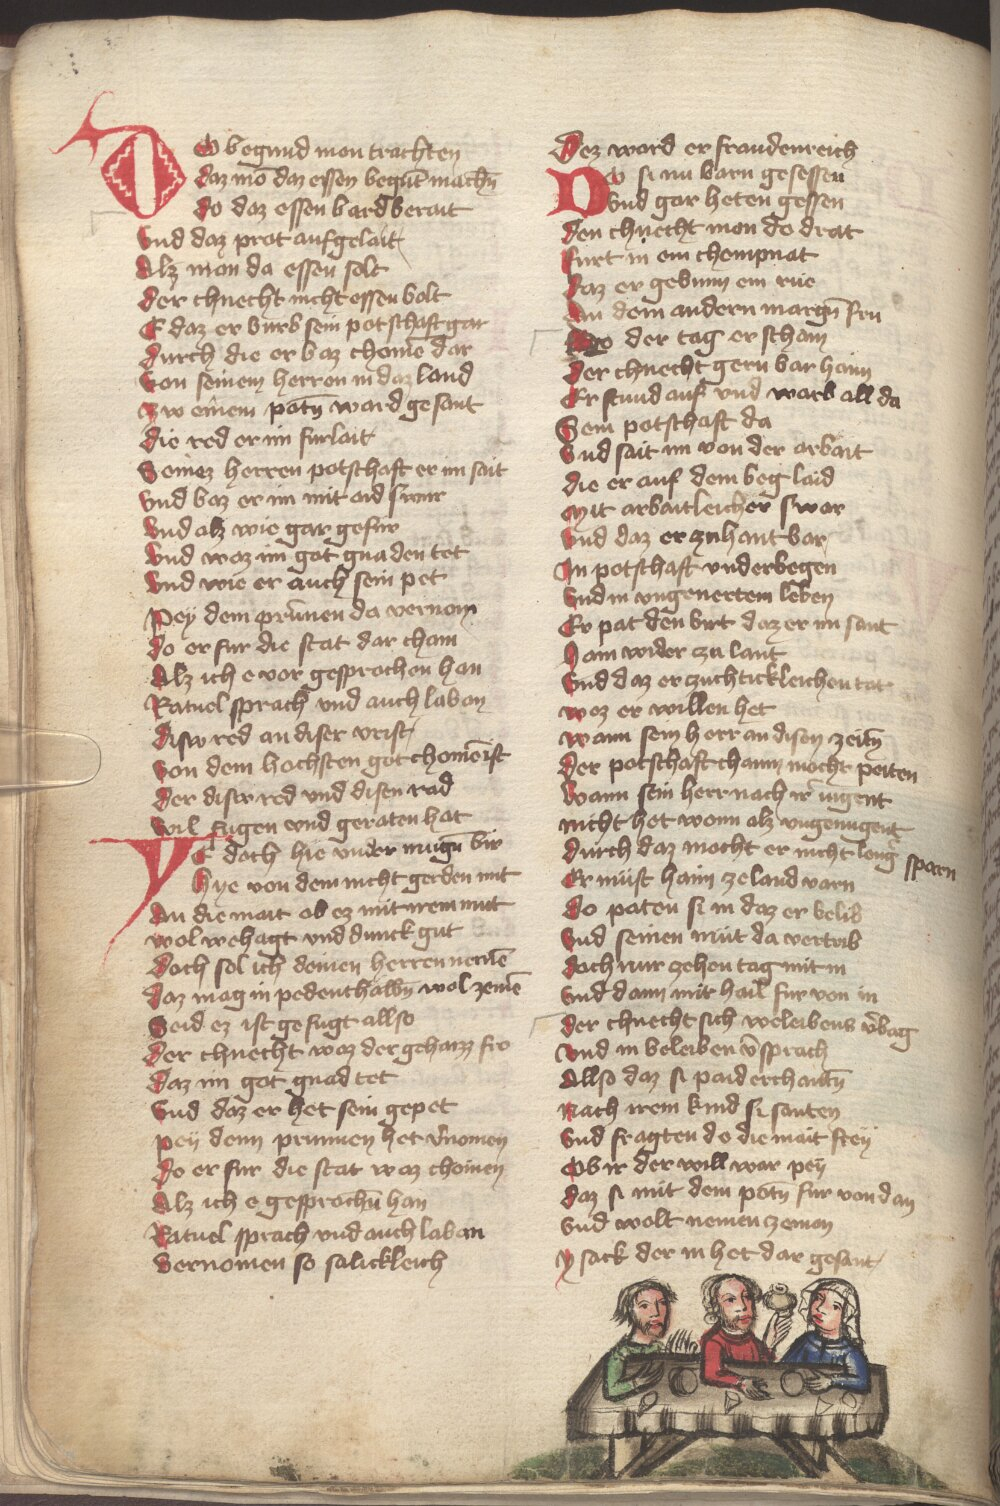 Do begund mon trachten
daz mō daz essen begūt machn̄
do daz essen bard berait
Vnd daz prot aufgelait
Alz mon da essen solt
Der chnecht nicht essen bolt
E daz er burb sein potschaft gar
Durch die er baz chomē dar
Von seinem herren in daz land
Zw einem potn̄ ward gesant
Die red er im furlait
Seinez herren potschaft er im sait
Vnd baz er im mit aid swur
Vnd alz wie gar gefur
Vnd waz im got gnaden tet
Vnd wie er auch sein pet
Pey dem prunnen da vernom
Do er fur die stat dar cham
Alz ich e vor gesprochen han
Ratuel sprach vnd auch laban
Disw red an diser vrist
Von dem hochsten got chomē ist
Der disw red vnd disen rad
Wil fugen vnd geraten hat
Ye doch hie vnder mugn̄ bir
Hye von dem nicht gerden mit
An die mait ob ez mit irem mut
Wol wehagt vnd dunck gut
Doch sol ich deinen herren nemē
Daz mag in pedenthalbn̄ wol zemē
Seid ez ist gefugt allso
Der chnecht waz der gehaizz fro
Daz im got gnad tet
Vnd daz er het sein gepet
Pey denn prunnen het v̄nomen
Do er fur die stat waz chomen
Alz ich e gesprochn̄ han
Ratuel sprach vnd auch laban
Vernomen so salickleich
Dez ward er fraudenreich
Do si nu barn gesessen
Vnd gar heten gessen
Den chnecht mon do drat
Furt in ein chempnat
Daz er gebunn ein rue
An dem andern margn̄ fru
Do der tag er schain
Der chnecht gern bar haim
Er stund auf vnd warb all da
Sein potschaft da
Vnd sait im von der arbait
Die er auf dem beg laid
Mit arbaitleicher swar
Vnd daz er zuhant bar
In potschaft vnderbegen
Vnd in vngenertem leben
Er pat den birt daz er im sant
Haim wider zu lant
Vnd daz er zuchtickleichen tat
Waz er willen het
Wann sein herr an disen zeitn̄
Der potschaft chaum mocht peiten
Wann sein herr nach ir iugent
Nicht het wonn alz vngemugent
Durch daz mocht er nicht leng sparn
Er must haim ze land varn
Do paten si in daz er belib
Vnd seinen mut da vertrib
Doch nur zehen tag mit in
Vnd dann mit hail fur von in
Der chnecht sich weleibens v̄bag
Vnd in beleiben v̄sprach
Allso daz si paid erchantn̄
Nach irem kind si santen
Vnd fragten do die mait frey
Ob ir der will war pey
Daz si mit dem potn̄ fur von dan
Vnd wolt nemen ze mon
Ysack der in het dar gesant